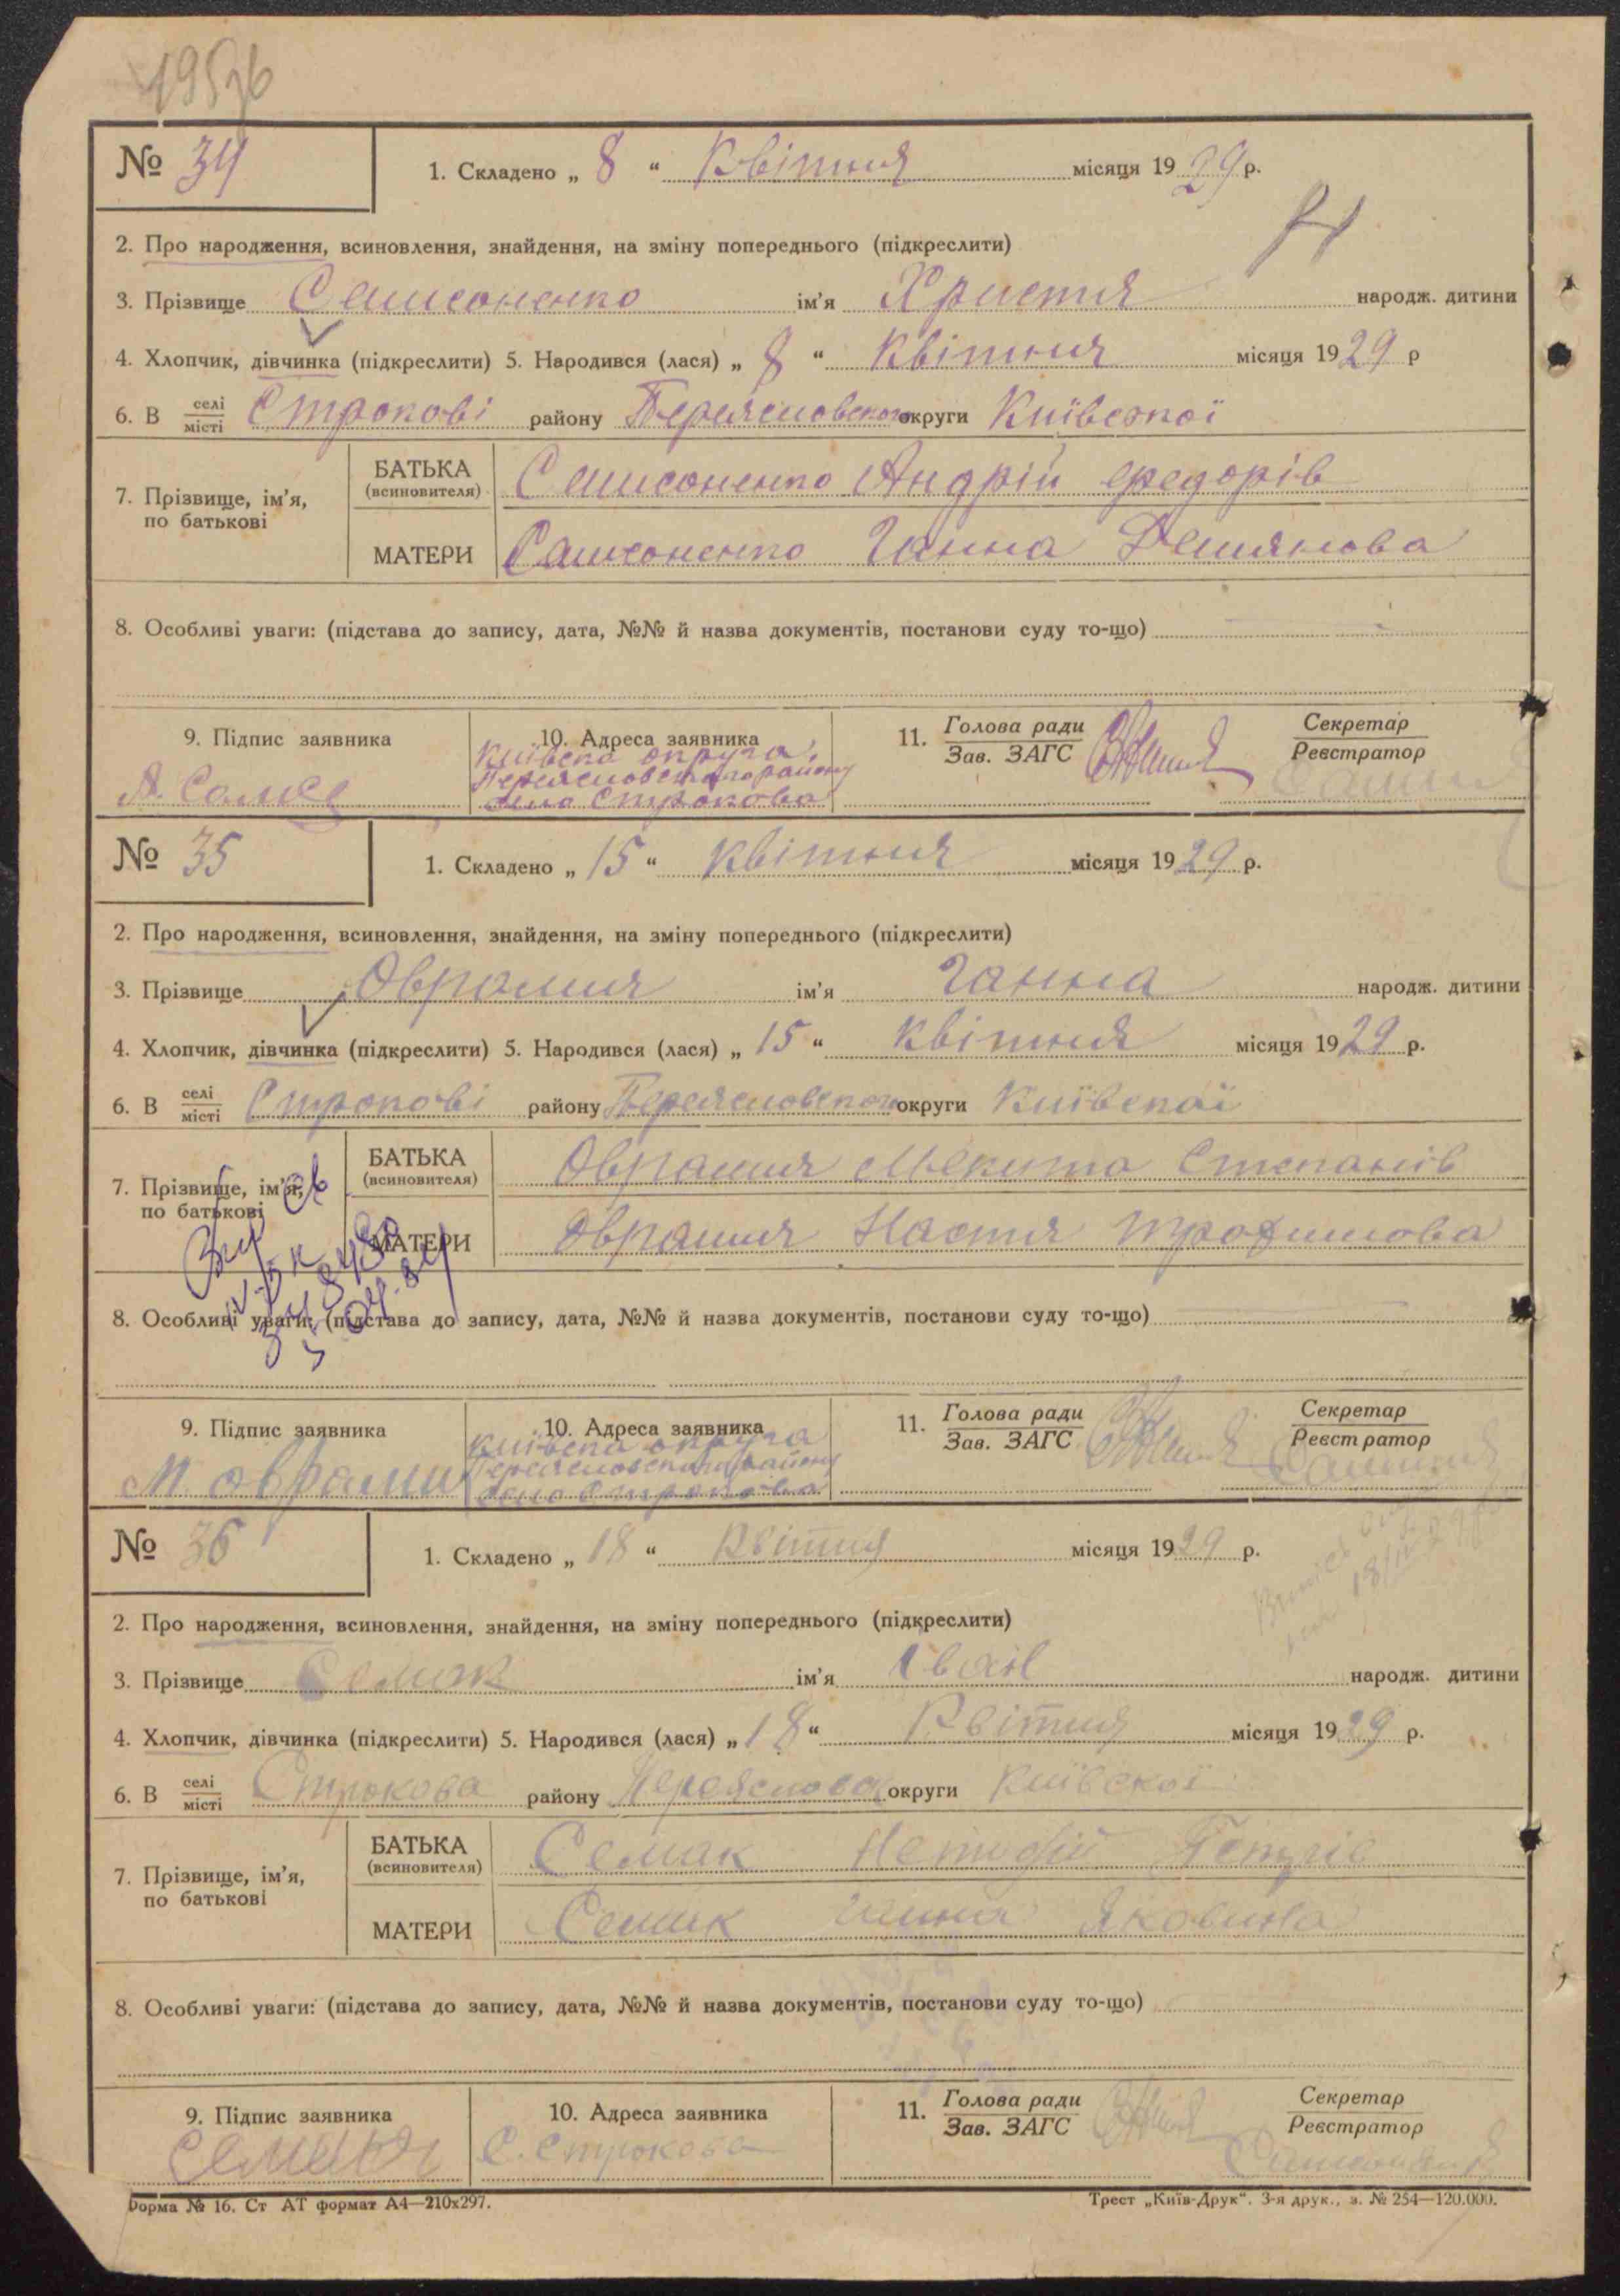 № 34 1. Складено „ 8 “ Квітня місяця 1929 р.
2. Про народження, всиновлення, знайдення, на зміну попереднього (підкреслити)
3. Прізвище Самсоненко ім'я Христя народж. дитини
4. Хлопчик, дівчинка (підкреслити) 5. Народився (лася) „ 8 “ Квітня місяця 1929 р
6. В селі місті Строкові району Переясловского округи Київської
7. Прізвище, ім'я, по батькові
БАТЬКА (всиновителя) Самсоненко Андрій Федорів
МАТЕРИ Самсоненко Ганна Демянова
8. Особливі уваги: (підстава до запису, дата, №№ й назва документів, постанови суду то-що)
9. Підпис заявника 10. Адреса заявника 11. Голова ради Зав. ЗАГС Секретар Реєстратор
Київска округа,
Переясловского району
село Строкова
№ 35 1. Складено „ 15 “ Квітня місяця 1929 р.
2. Про народження, всиновлення, знайдення, на зміну попереднього (підкреслити)
3. Прізвище Оврамия ім'я Ганна народж. дитини
4. Хлопчик, дівчинка (підкреслити) 5. Народився (лася) „ 15 “ Квітня місяця 1929 р.
6. В селі місті Строкові району Переясловского округи Київскої
7. Прізвище, ім'я, по батькові
БАТЬКА (всиновителя) Оврамия Мекита Степанів
МАТЕРИ Оврамия Настя Трофимова
8. Особливі уваги: (підстава до запису, дата, №№ й назва документів, постанови суду то-що)
9. Підпис заявника 10. Адреса заявника 11. Голова ради Зав. ЗАГС Секретар Реєстратор
Київска округа
Переясловского району
село Строкова
№ 36 1. Складено „ 18 “ Квітня місяця 1929 р.
2. Про народження, всиновлення, знайдення, на зміну попереднього (підкреслити)
3. Прізвище Семак ім'я Іван народж. дитини
4. Хлопчик, дівчинка (підкреслити) 5. Народився (лася) „ 18 “ Квітня місяця 1929 р.
6. В селі місті Строкова району округи Київскої
7. Прізвище, ім'я, по батькові
БАТЬКА (всиновителя) Семак Петрів
МАТЕРИ Семак Ганна Яковина
8. Особливі уваги: (підстава до запису, дата, №№ й назва документів, постанови суду то-що)
9. Підпис заявника 10. Адреса заявника 11. Голова ради Зав. ЗАГС Секретар Реєстратор
С. Строкова
Форма № 16. Ст АТ формат А4—210х297. Трест „Київ-Друк“. 3-я друк., з. № 254—120.000.